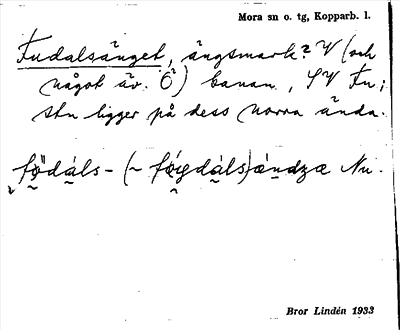 Mora sn o. tg, Kopparb. l.
Fudalsänget, ängsmark? V (och
något äv. Ö) banan, SV Fu;
stn ligger på dess norra ända.
födáls- (~ föıgdáls)ándzæ Nu.
Bror Lindén 1933